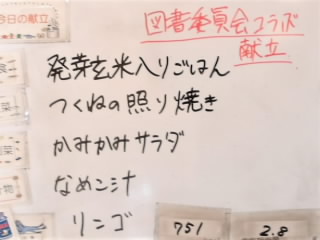 今日の献立
図書委員会コラボ
献立
発芽玄米入りごはん
つくねの照り焼き
かみかみサラダ
なめこ汁
リンゴ
751
2.8